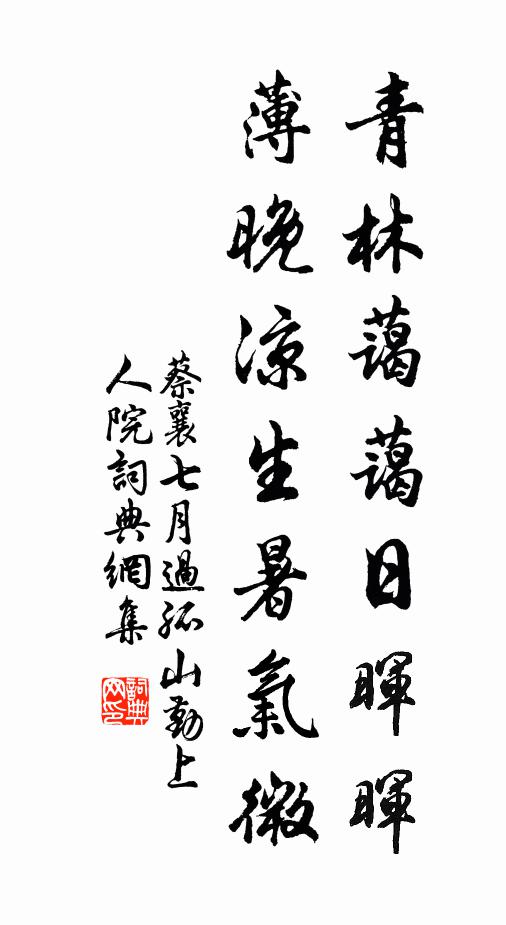 青林藹藹日暉暉
薄晚涼生暑氣微
蔡襄七月過孤山勤上
人院詞典網集
詞典網印